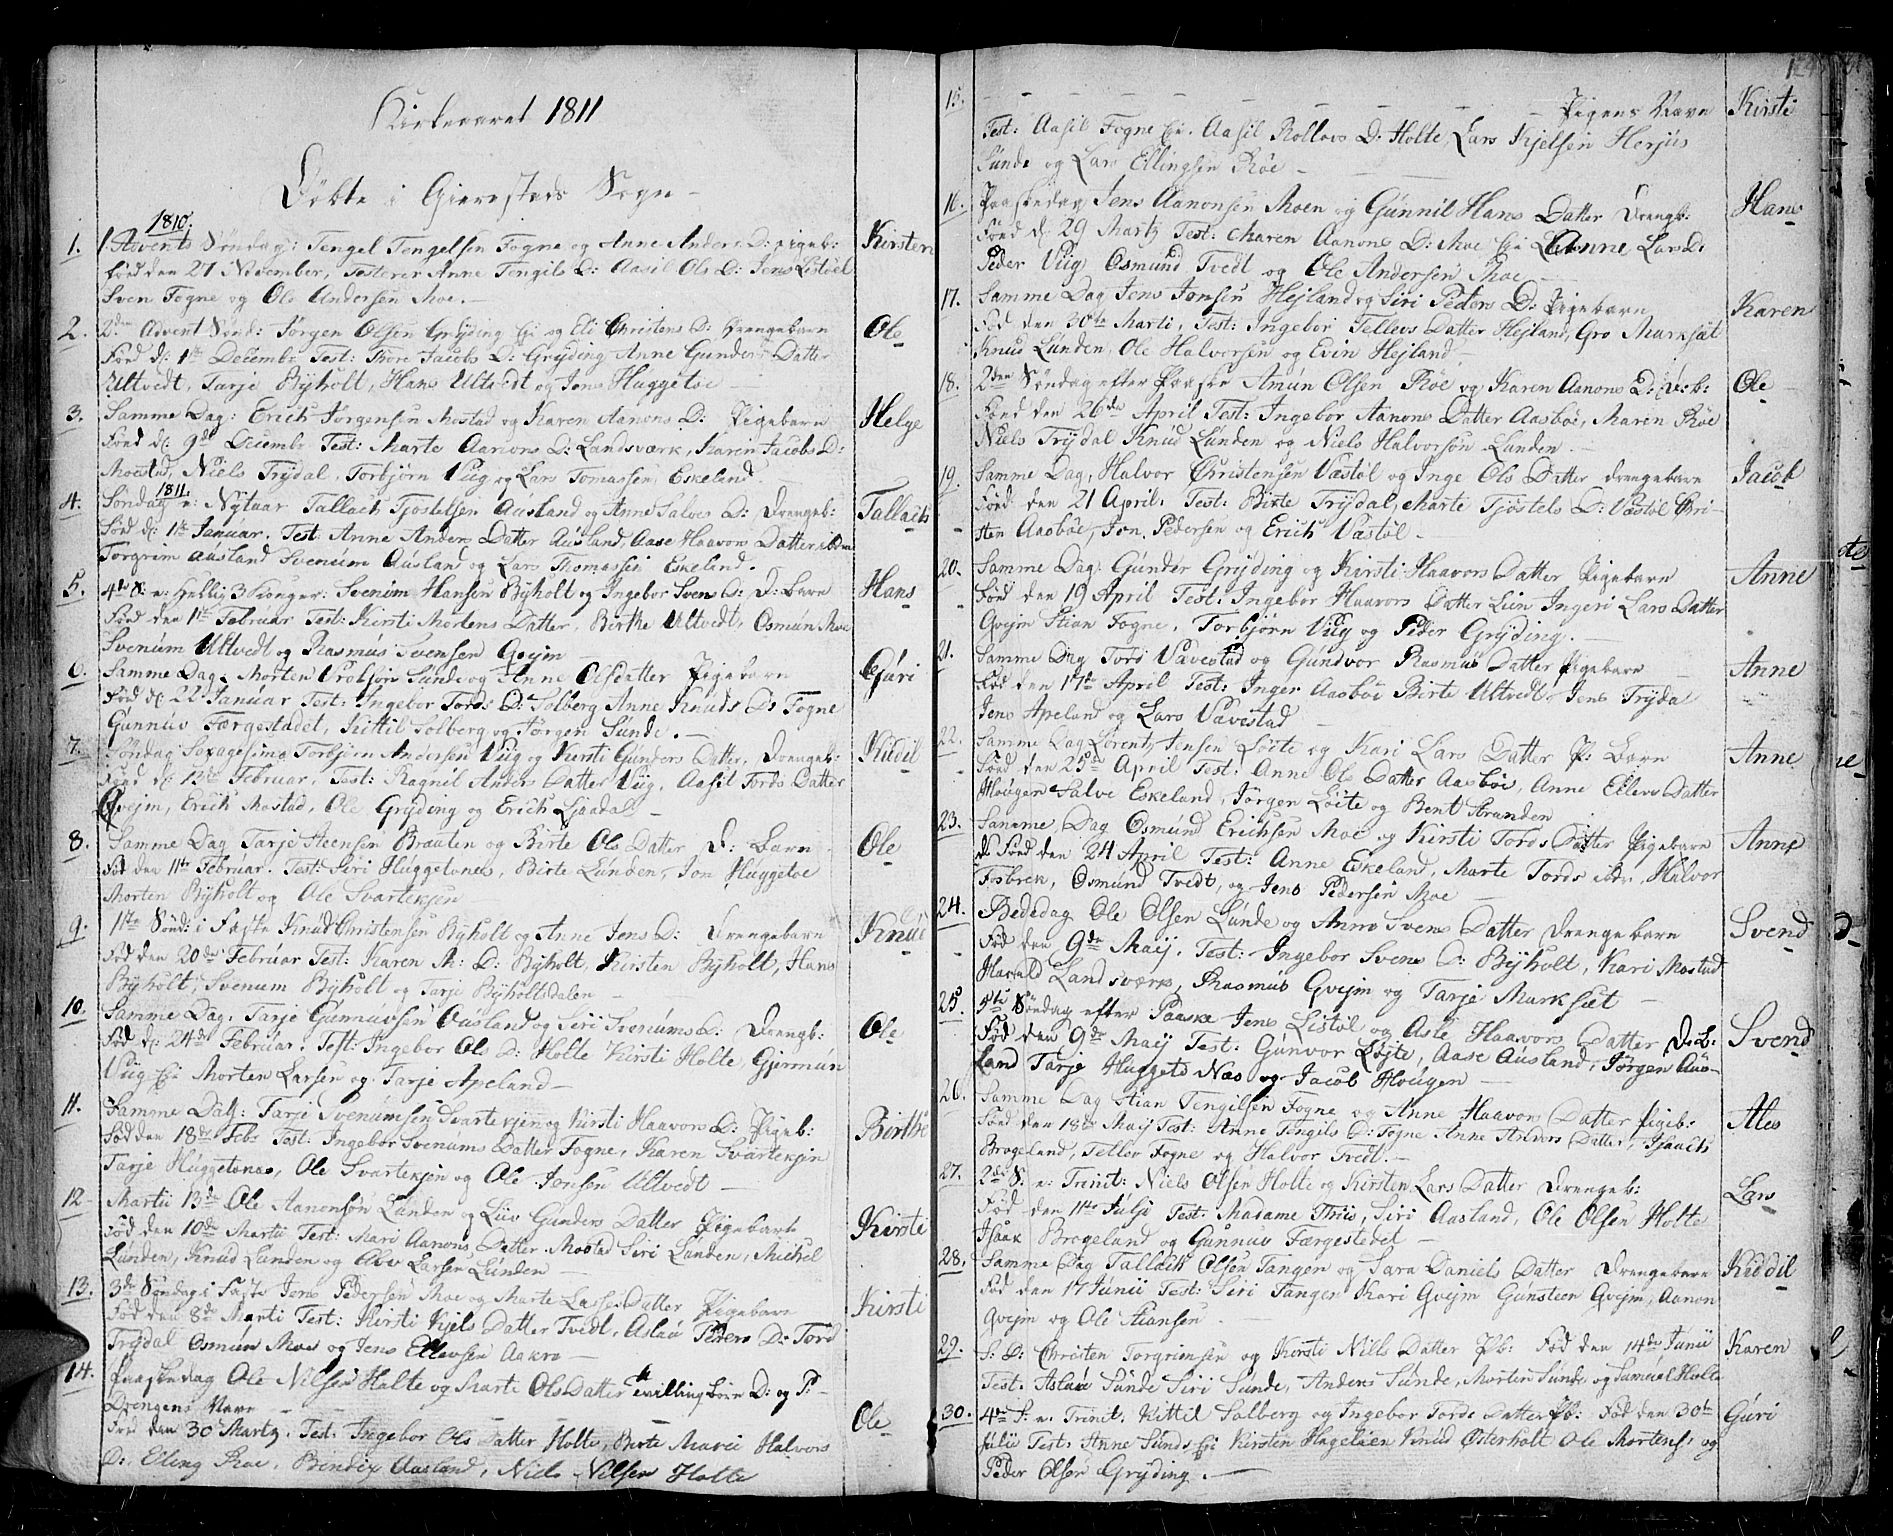 Kirkeaaret 1811
Döbte i Gierestads Sogn
1810.
1. 1. Advents Söndag: Tengel Tengelsen Fogne og Anne Anders D: pigeb: Kirsten
Föd den 27 November, Testerer Anne Tengils D: Aasil Ols D: Jens Listöel
Sven Fogne og Ole Andersen Moe.
2. 2den Advent Sönd: Jörgen Olsen Gryding og Eli Christens D: Drengebarn Ole
Föd d: 1te Decembr Test: Tore Jacobs D: Gryding Anne Gunders Datter
Ultvedt, Tarje Byholt, Hans Ultvedt og Jens Huggetoe
3. Samme Dag: Erich Jörgensen Mostad og Karen Aanons D: Pigebarn Helge
Föd d: 9de Decembr Test: Marte Aanons D: Landsværk, Karen Jacobs D:
Mostad, Niels Trydal, Torbjörn Viig og Lars Tomassen Eskeland.
1811.
4. Söndag e: Nytaar Tallach Tjöstelsen Ausland og Anne Salves D: Drengeb: Tallach
Föd d: 1te Januar. Test: Anne Anders Datter Ausland, Aase Haavors Datter ibdm
Torgrim Ausland Svenum Ausland og Lars Thomassen Eskeland.
5. 4de S: e: Hellig 3 Konger: Svenum Hansen Byholt og Ingebor Svens D: D: Barn Hans
Föd den 1te Februar Test: Kirsti Mortens Datter, Birthe Ultvedt, Osmun Moe
Svenum Ultvedt og Rasmus Svensen Gvejm
6. Samme Dag Morten Sunde og Anne Olsdatter Pigebarn Guri
Föd d: 22 Januar Test: Ingebor Tords D: Solberg Anne Knuds D: Fogne
Gunnus Færgestadet, Kittil Solberg og Jörgen Sunde.
7. Söndag Sexagesima Torbjörn Andersen Viig og Kirsti Gunders Datter, Drengeb: Kiddil
Föd d: 12te Februar, Test: Ragnil Anders Datter Viig, Aasil Tords Datter
Gvejm, Erich Mostad, Ole Gryding og Erich Ljaadal
8. Samme Dag Tarje Steensen Braaten og Birte Ols Datter D: Barn Ole
Föd den 11te Februar. Test: Siri Huggetones, Birte Lunden, Jon Huggetoe
Morten Byholt og Ole Svarteksen
9. 1ste Sönd: i Faste Knud Christensen Byholt og Anne Jens D: Drengebarn Knud
Föd den 20de Februar Test: Karen M: D: Byholt, Kirsten Byholt, Hans
Byholt, Svenum Byholt og Tarje Byholtsdalen
10. Samme Dag. Tarje Gunnufsen Ousland og Siri Svenums D: Drengb: Ole
Föd d: 24de Februar. Test: Ingebor Ols D: Holte Kirsti Holte, Gjermun
Viig Morten Larsen og Tarje Apeland
11. Samme Dag: Tarje Svenumsen Svartekjen og Kirsti Haavors D: Pigeb: Birthe
Föd den 18de Febr Test: Ingebor Svenums Datter Fogne, Karen Svartekjen
Tarje Huggetones, Ole Svartekjen og Ole Jensen Ultvedt
12 Martii 13de Ole Aanonsön Lunden og Liv Gunders Datter Pigebarn Kirsti
Föd den 10de Martii Test: Mari Aanons Datter Mostad Siri Lunden, Michel
Lunden, Knud Lunden og Ole Larsen Lunden
13. 3de Söndag i Faste Jens Pedersen Moe og Marte Lasses Datter Pigebarn Kirsti
Föd den 8de Marti Test: Kirsti Kjels Datter Tvedt, Aslau Peders D: Tord
Trydal Osmun Moe og Jens Ellevsen Aakre
14. Paaskedag Ole Nilsen Holte og Marte Ols Datter tvillingbörn D: og P:
Drengens Navn Ole
Föd den 30 Martz. Test: Ingebor Ols Datter Holte, Birte Marie Halvors
D: Elling Roe, Bendix Aasland, Niels Nilsen Holte
15. Pigens Navn Kirsti
Test: Aasil Fogne Aasil Rollovs D: Holte, Lars Kjelsen Herjus
Sunde og Lars Ellingsen Röe
16. Paaskedag Jens Aanonsen Moen og Gunnil Hans Datter Drengb: Hans
Föd d: 29 Martz Test: Maren Aanons D: Moe Anne Lars D:
Peder Viig Osmund Tvedt og Ole Andersen Moe
17. Samme Dag Jens Jonsen Hejland og Siri Peders D: Pigebarn Karen
Föd den 30te Marti, Test: Ingebor Tellevs Datter Hejland, Gro Marksæt
Knud Lunden, Ole Halvorsen og Evin Hejland
18. 2den Söndag efter Paaske Amun Olsen Röe og Karen Aanons D: D:b: Ole
Föd den 26de April Test: Ingebor Aanons Datter Aasböe, Maren Röe
Niels Trydal Knud Lunden og Niels Halvorsön Lunden
19. Samme Dag, Halvor Christensen Væstöl og Inge Ols Datter Drengebarn Jacob
Föd den 21 April. Test: Birte Trydal, Marte Tjöstels D: Væstöl Chri-
sten Aasböe, Jon Pedersen og Erich Væstöl
20. Samme Dag: Gunder Gryding og Kirsti Haavors Datter Pigebarn Anne
Föd den 19 April Test: Ingebor Haavors Datter Lien Ingeri Lars Datter
Gvejm Stian Fogne, Torbjörn Viig og Peder Gryding.
21. Samme Dag Tord Vavestad og Gundvor Rasmus Datter Pigebarn Anne
Föd den 17te April Test: Inger Aasböe Birte Ultvedt, Jens Trydal
Jens Apeland og Lars Vavestad
22. Samme Dag Lorentz Jensen Löite og Kari Lars Datter P: Barn Anne
Föd den 25de April Test: Anne Ols Datter Aasböe, Anne Ellevs Datter
Hougen Salve Eskeland, Jörgen Löite og Bent Stranden
23. Samme Dag Osmund Erichsen Moe og Kirsti Tords Datter Pigebarn Anne
Föd den 24 April Test: Anne Eskeland, Marte Tords ibdm, Halvor
Fosbrek, Osmund Tvedt, og Jens Pedersen Moe
24. Bededag Ole Olsen Lunde og Anne Svens Datter Drengebarn Svend
Föd den 9de Maij. Test: Ingebor Svens D: Byholt, Kari Mostad
Harald Landsværk, Rasmus Gvejm og Tarje Marksæt
25. 5te Söndag efter Paaske Jens Listöl og Asle Haavors Datter D:B: Svend
Föd den 9de Maij Test: Gunvor Löite, Aase Ausland, Jörgen Aus-
land Tarje Huggeto Næs og Jacob Hougen
26. Samme Dag Stian Tengilsen Fogne og Anne Haavors Datter Pigeb: Ales
Föd den 18de Maij Test: Anne Tengils D: Fogne Anne Datter, Isaach
Brogeland, Tellev Fogne og Halvor Tvedt.
27. 2de S: e: Trinit: Niels Olsen Holte og Kirsten Lars Datter Drengeb: Lars
Föd den 11te Julji Test: Madame Thiis, Siri Aasland, Ole Olsen Holte
Isaak Brogeland og Gunnus Færgestedet
28. Samme Dag Tallach Olsen Tangen og Sara Daniels Datter Drengebarn Kiddil
Föd den 17 Junii Test: Siri Tangen Kari Gvejm Gunsteen Gvejm, Aanon
Gvejm og Ole Stiansen
29. S: D: Christen Torgrimsen og Kirsti Nills Datter Pb: Föd den 14de Junii Karen
Test: Aslau Sunde Siri Sunde, Anders Sunde, Morten Sunde og Samuel Holte
30. 4de S: e: Trinit. Kittil Solberg og Ingebor Tords Datter Pb: Föd den 30te Guri
Julii Test: Anne Sunde Kirsten Hagelien Knud Österholt Ole Mortens: og
Peder Olsen Gryding.